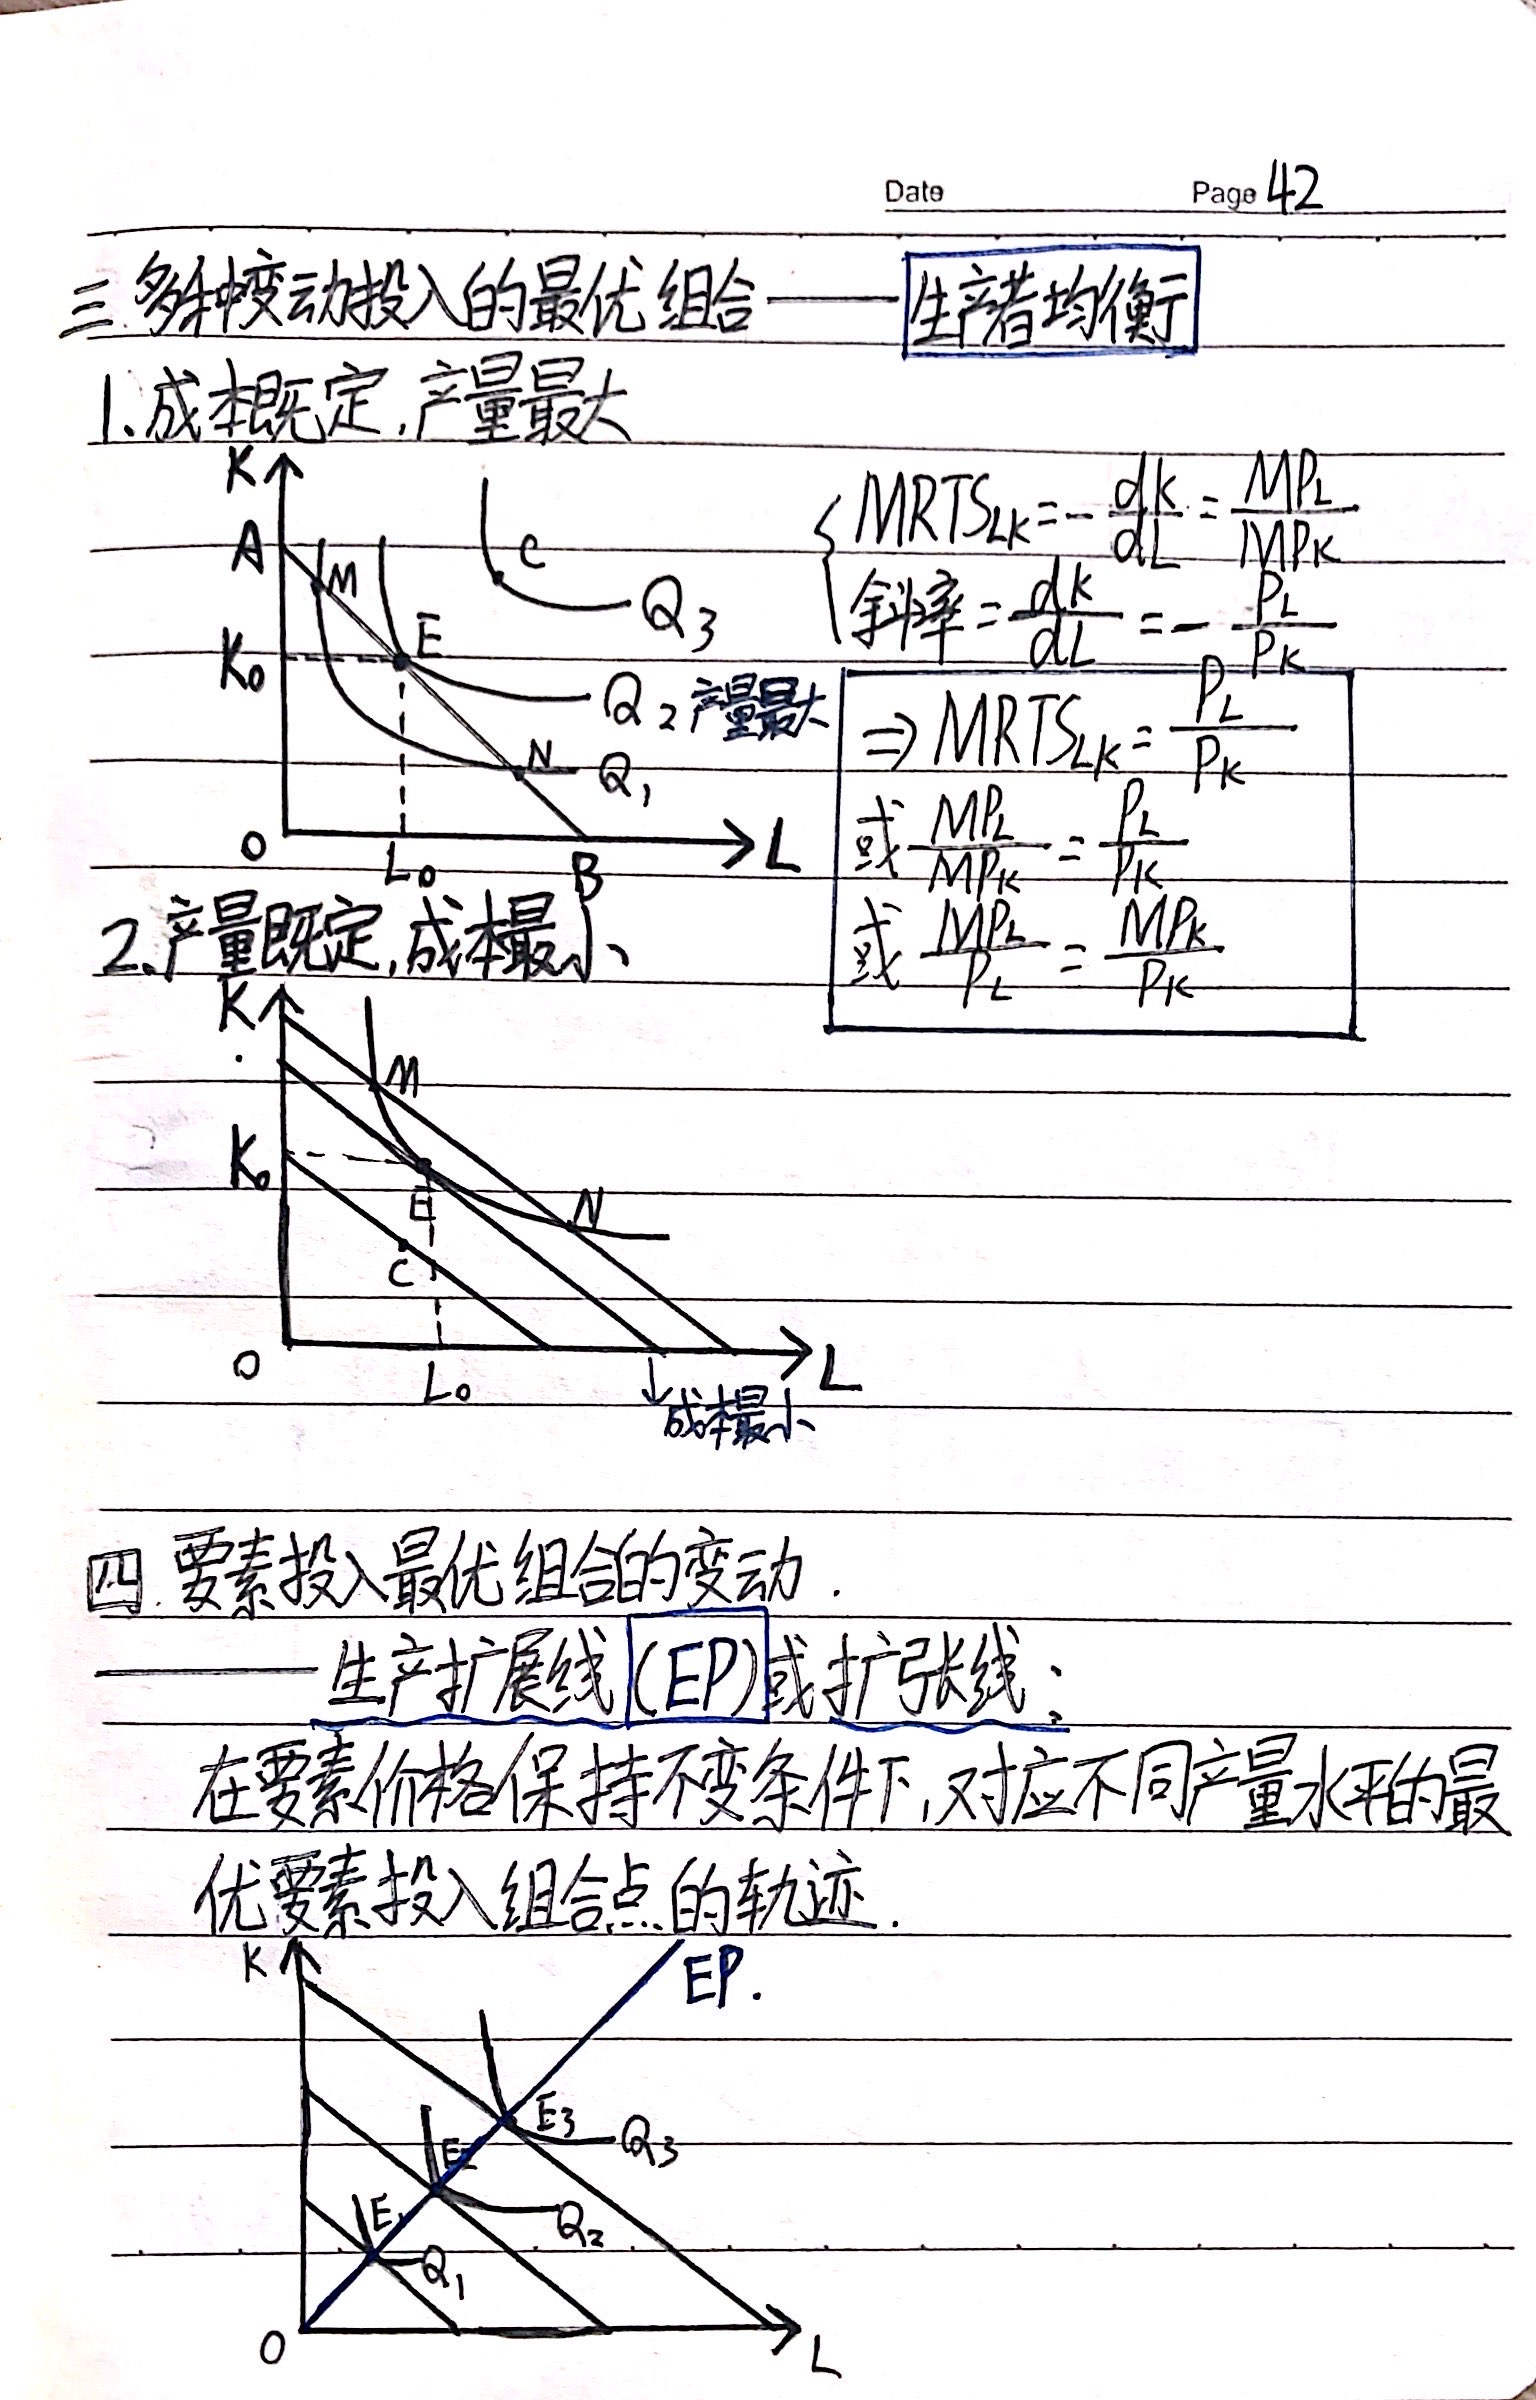 Date Page 42
三.多种变动投入的最优组合——生产者均衡
1.成本既定,产量最大
K
A
M
E
C
Q₃
K₀
Q₂ 产量最大
N
Q₁
O
L₀
B
L
{MRTS_LK = -dk/dL = MP_L/MP_K
斜率 = dk/dL = -P_L/P_K
⇒ MRTS_LK = P_L/P_K
或 MP_L/MP_K = P_L/P_K
或 MP_L/P_L = MP_K/P_K
2.产量既定,成本最小
K
M
K₀
E
N
C
O
L₀
L
↓成本最小
四.要素投入最优组合的变动.
——生产扩展线(EP)或扩张线:
在要素价格保持不变条件下,对应不同产量水平的最
优要素投入组合点的轨迹.
K
EP.
E₃
Q₃
E₂
Q₂
E₁
Q₁
O
L